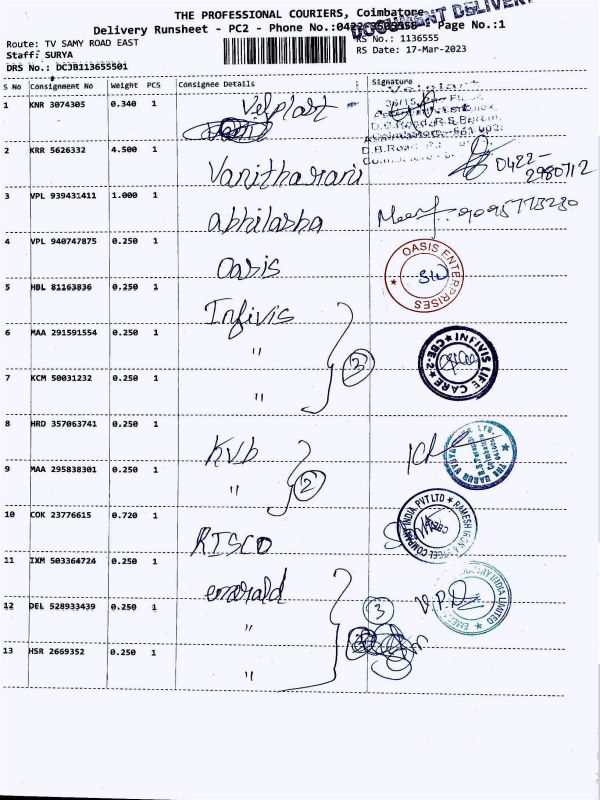 THE PROFESSIONAL COURIERS, Coimbatore
DOCUMENT DELIVERY
Delivery Runsheet - PC2 - Phone No.: Page No.:1
Route: TV SAMY ROAD EAST
Staff: SURYA
DRS No.: DCJB113655501
RS No.: 1136555
RS Date: 17-Mar-2023
S No Consignment No Weight PCS Consignee Details Signature
1 KNR 3074305 0.340 1 Velplast
2 KRR 5626332 4.500 1 Vanitharani 0422-2980712
3 VPL 939431411 1.000 1 abhilasha 9095773280
4 VPL 940747875 0.250 1 Oasis
OASIS ENTERPRISES
5 HBL 81163836 0.250 1 Infivis
6 MAA 291591554 0.250 1 "
3
INFIVIS LIFE CARE CBE-2
7 KCM 50031232 0.250 1 "
8 HRD 357063741 0.250 1 Kvb
9 MAA 295838301 0.250 1 "
2
10 COK 23776615 0.720 1 RISCO
11 IXM 503364724 0.250 1 emerald
12 DEL 528933439 0.250 1 "
3
13 HSR 2669352 0.250 1 "